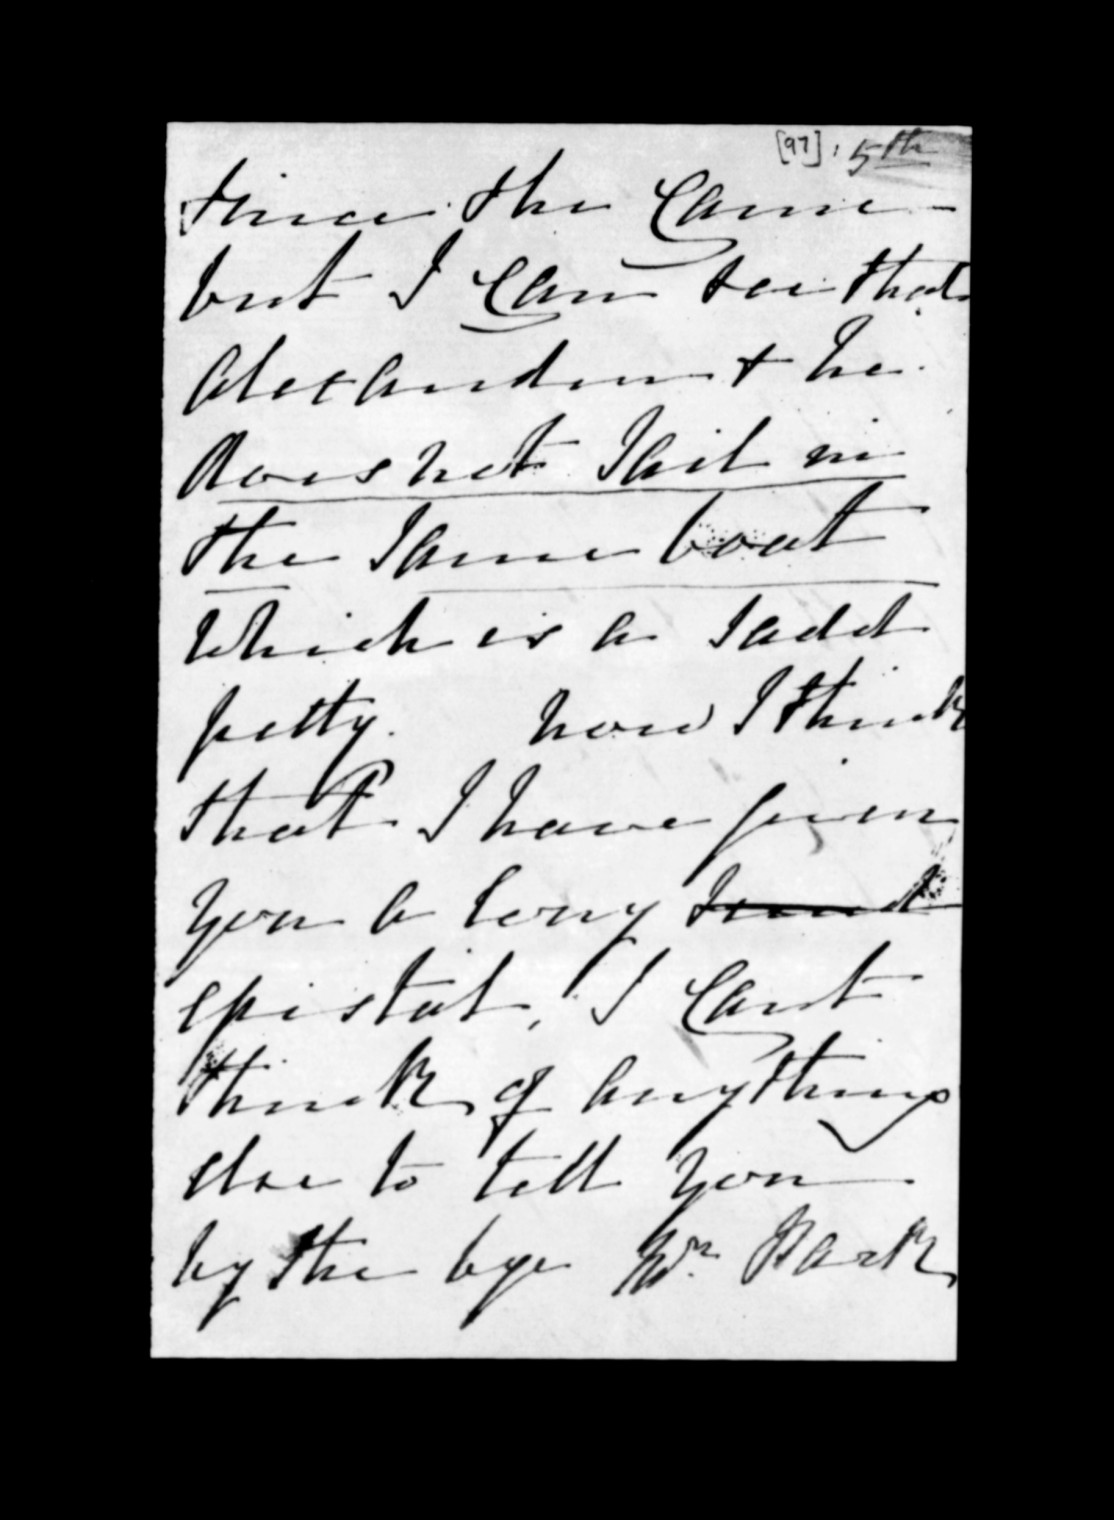 [97] 5th
since the came
but I can see that
Alexander & he
does not Sail in
the Same boat
which is a Sadd
petty. now I think
that I have given
you a long
epistal, I cant
think of anything
else to tell you
by the bye Mr. Park